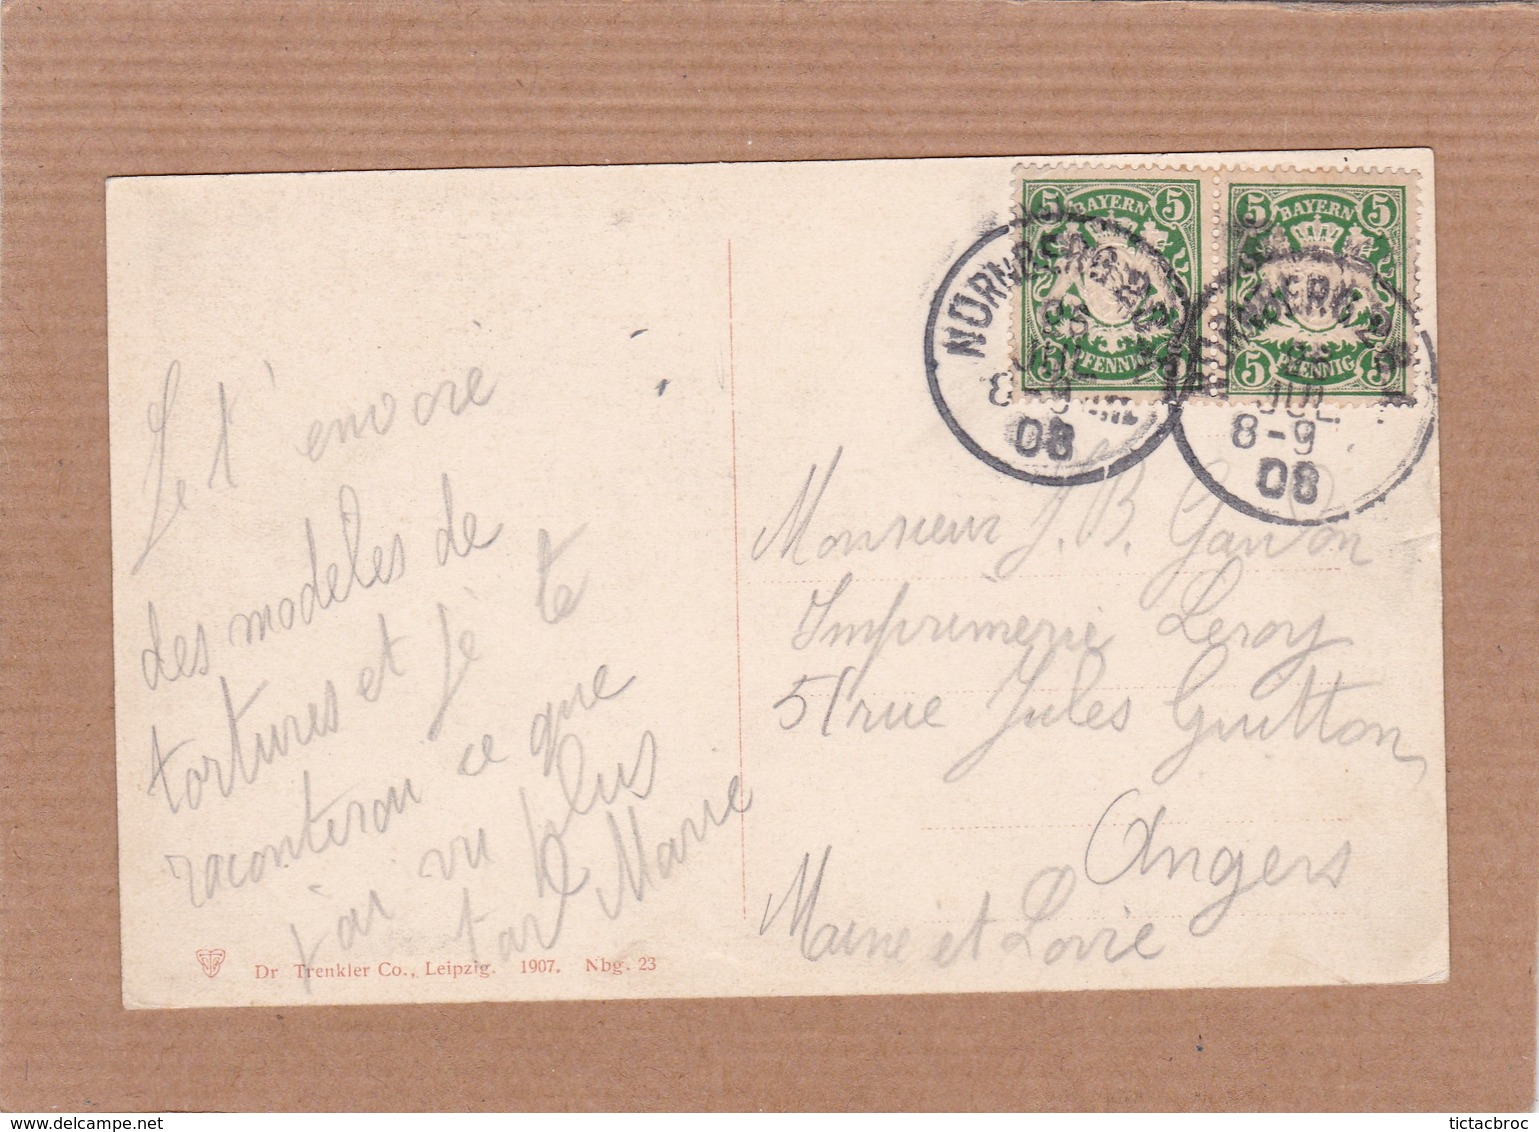 Je t'envoie
des modèles de
tortures et je te
raconterai ce que
j'ai vu plus
tard Marie
Dr Trenkler Co., Leipzig. 1907. Nbg. 23
5 BAYERN 5
5 PFENNIG 5
5 BAYERN 5
5 PFENNIG 5
NÜRNBERG 2
JUL
8-9
08
NÜRNBERG 2
JUL
8-9
08
Monsieur J. B. Gandon
Imprimerie Leroy
51 rue Jules Guitton
Angers
Maine et Loire
tictacbroc